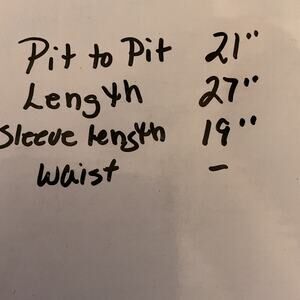 Pit to Pit 21"
Length 27"
Sleeve length 19"
Waist -